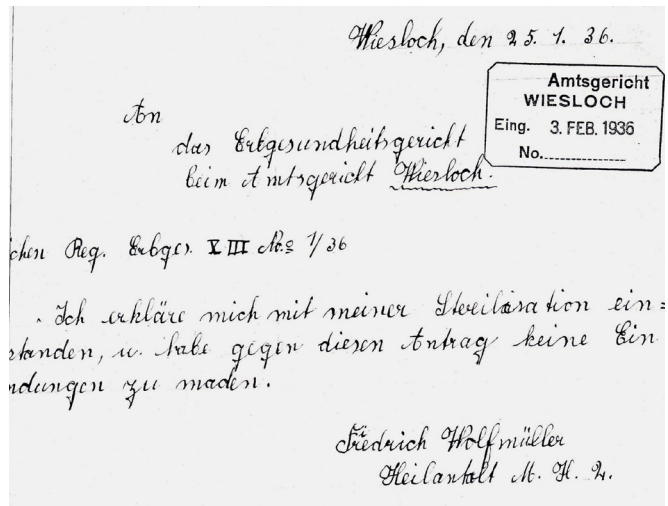 Wiesloch, den 25. 1. 36.
Amtsgericht
WIESLOCH
Eing. 3. FEB. 1936
No.
An
das Erbgesundheitsgericht
beim Amtsgericht Wiesloch.
ichen Reg. Erbges. XIII No. 1/36
Ich erkläre mich mit meiner Sterilisation ein=
standen, u. habe gegen diesen Antrag keine Ein
ndungen zu maden.
Friedrich Wolfmüller
Heilantalt M. H. 2.